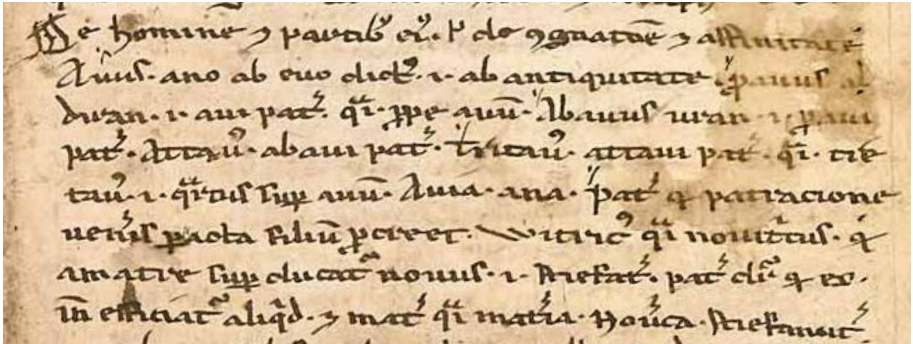 De homine ⁊ partib; ei⁹. ł de ↄgnatōe ⁊ affinitate
Auus. ano ab euo dict⁹. i. ab antiquitate. ꝓauus al
duran. i. aui pat̾. q̄i. ꝓpe auū. Abauus uran. i. ꝓaui
pat̾. Attau⁹. abaui pat̾. Tritau⁹. attaui pat̾. q̄i. tie
tau⁹. i. q̄rtus sup auū. Auia. ana. Pat̾ ꝙ patracione
ueneris pacta filiū ꝓcreet. Witric⁹ q̄i nouit̾cus. ꝙ
a matre sup ducat̾ nouus. i. stiefat̾. pat̾ d̄r ꝙ ex.
in efficiat̾ aliqd. ⁊ mat̾ q̄i mat̾ia. Nou̾ca. stiefmoit̾